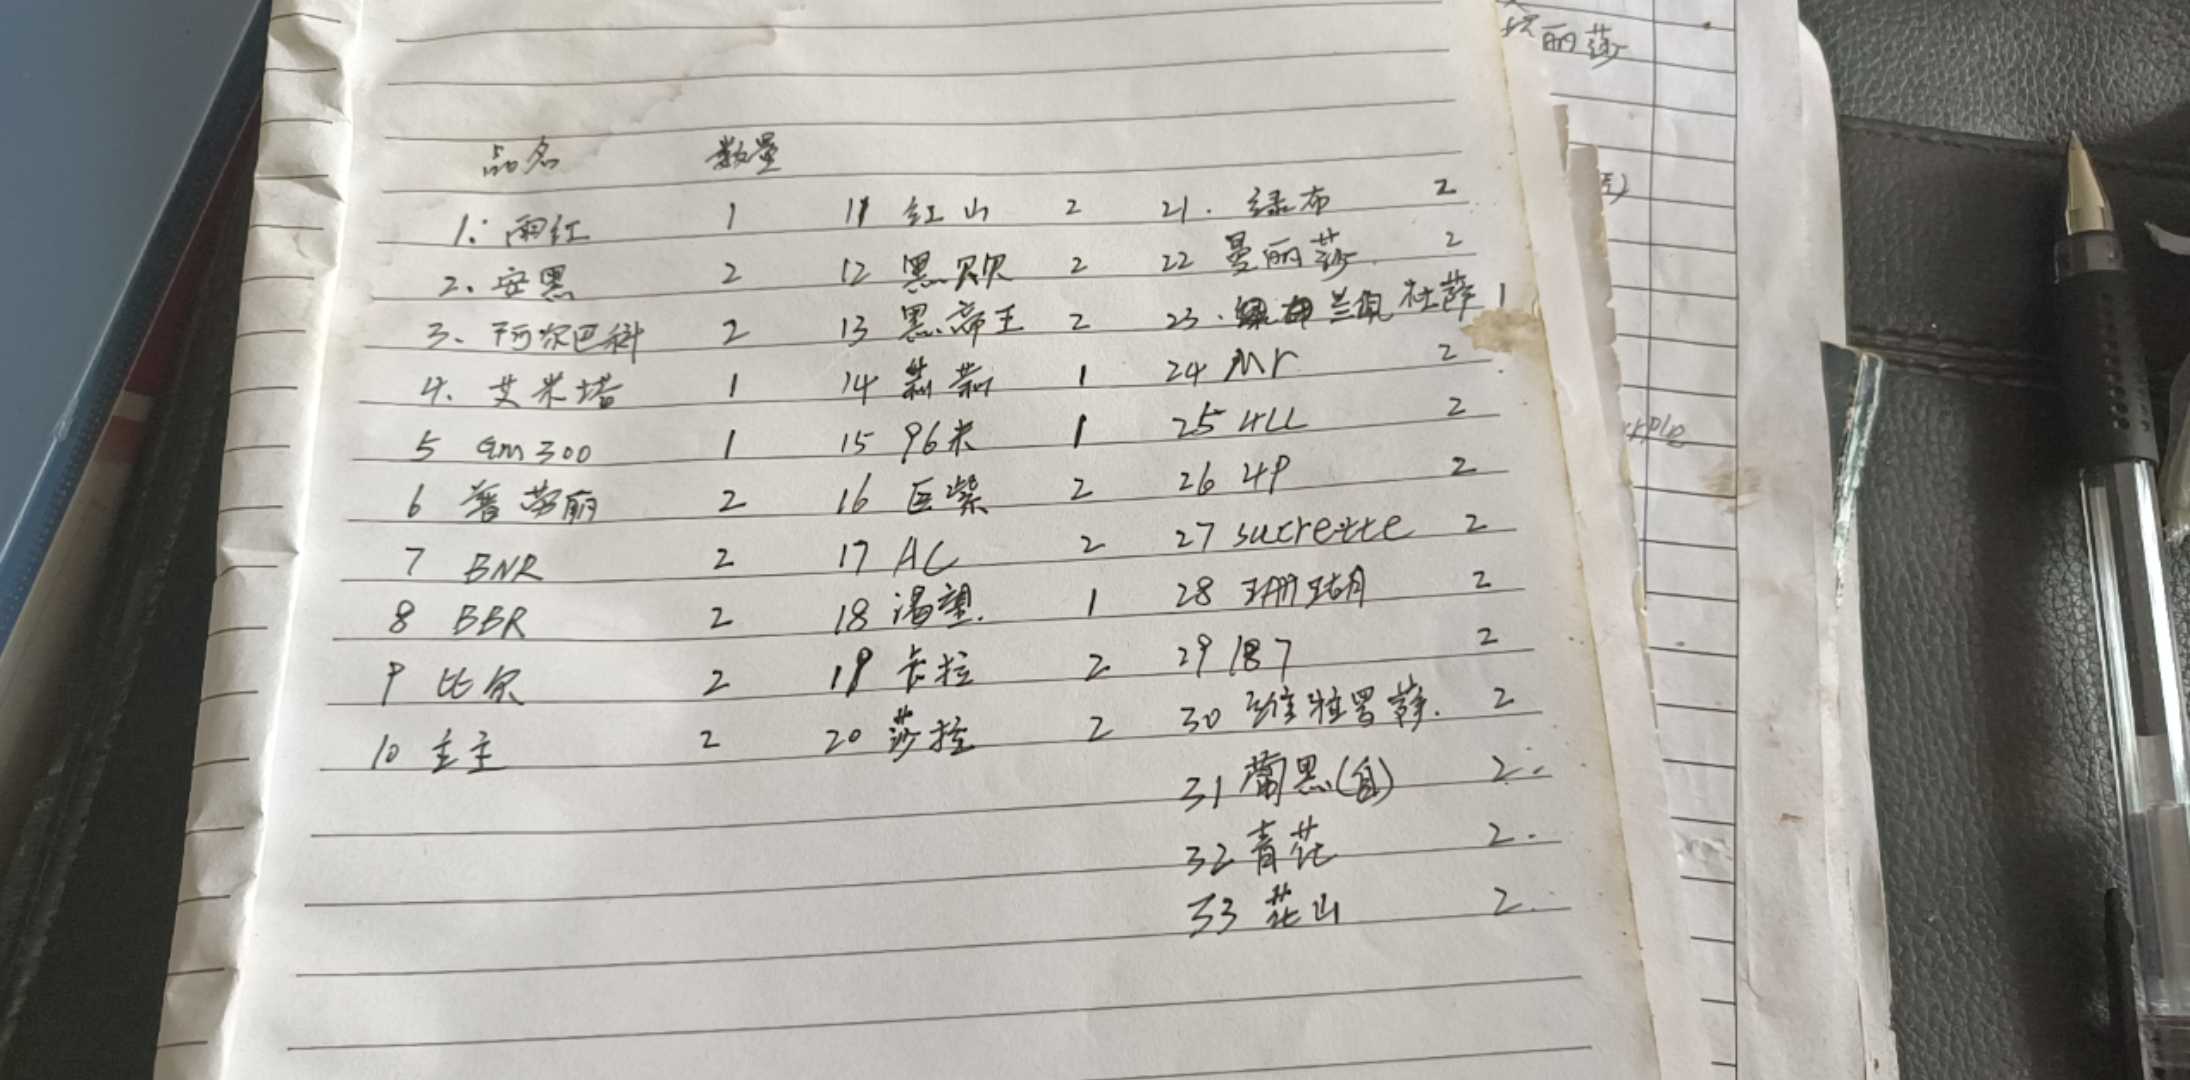 品名 数量
1. 雨红 1 11 红山 2 21. 绿布 2
2. 安黑 2 12 黑欧 2 22 曼丽莎. 2
3. 阿尔巴科 2 13 黑帝王 2 23. 兰佩杜薛 1
4. 艾米塔 1 14 莉莉 1 24 Mr 2
5 am300 1 15 96米 1 25 4LL 2
6 普劳丽 2 16 巨紫 2 26 4P 2
7 BNR 2 17 AC 2 27 sucrette 2
8 BBR 2 18 渴望. 1 28 珊瑚 2
9 比尔 2 19 卡拉 2 29 187 2
10 主主 2 20 莎拉 2 30 维拉罗薛. 2
31 黑(自) 2.
32 青花 2.
33 花山 2.
丽莎